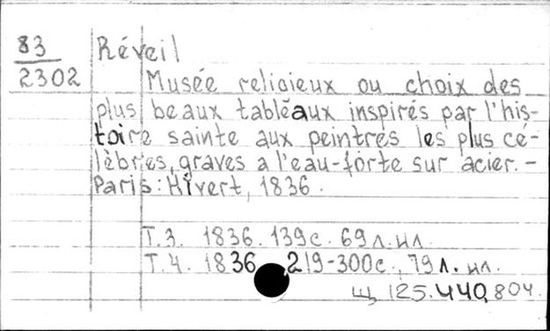 83
2302
Réveil
Musée religieux ou choix des
plus beaux tableaux inspirés par l'his-
toire sainte aux peintres les plus cé-
lèbres, graves a l'eau-forte sur acier. -
Paris: Hivert, 1836.
T. 3. 1836. 139с. 69л. ил.
Т. 4. 1836 219-300с., 79л. ил.
Щ 125.440,804.